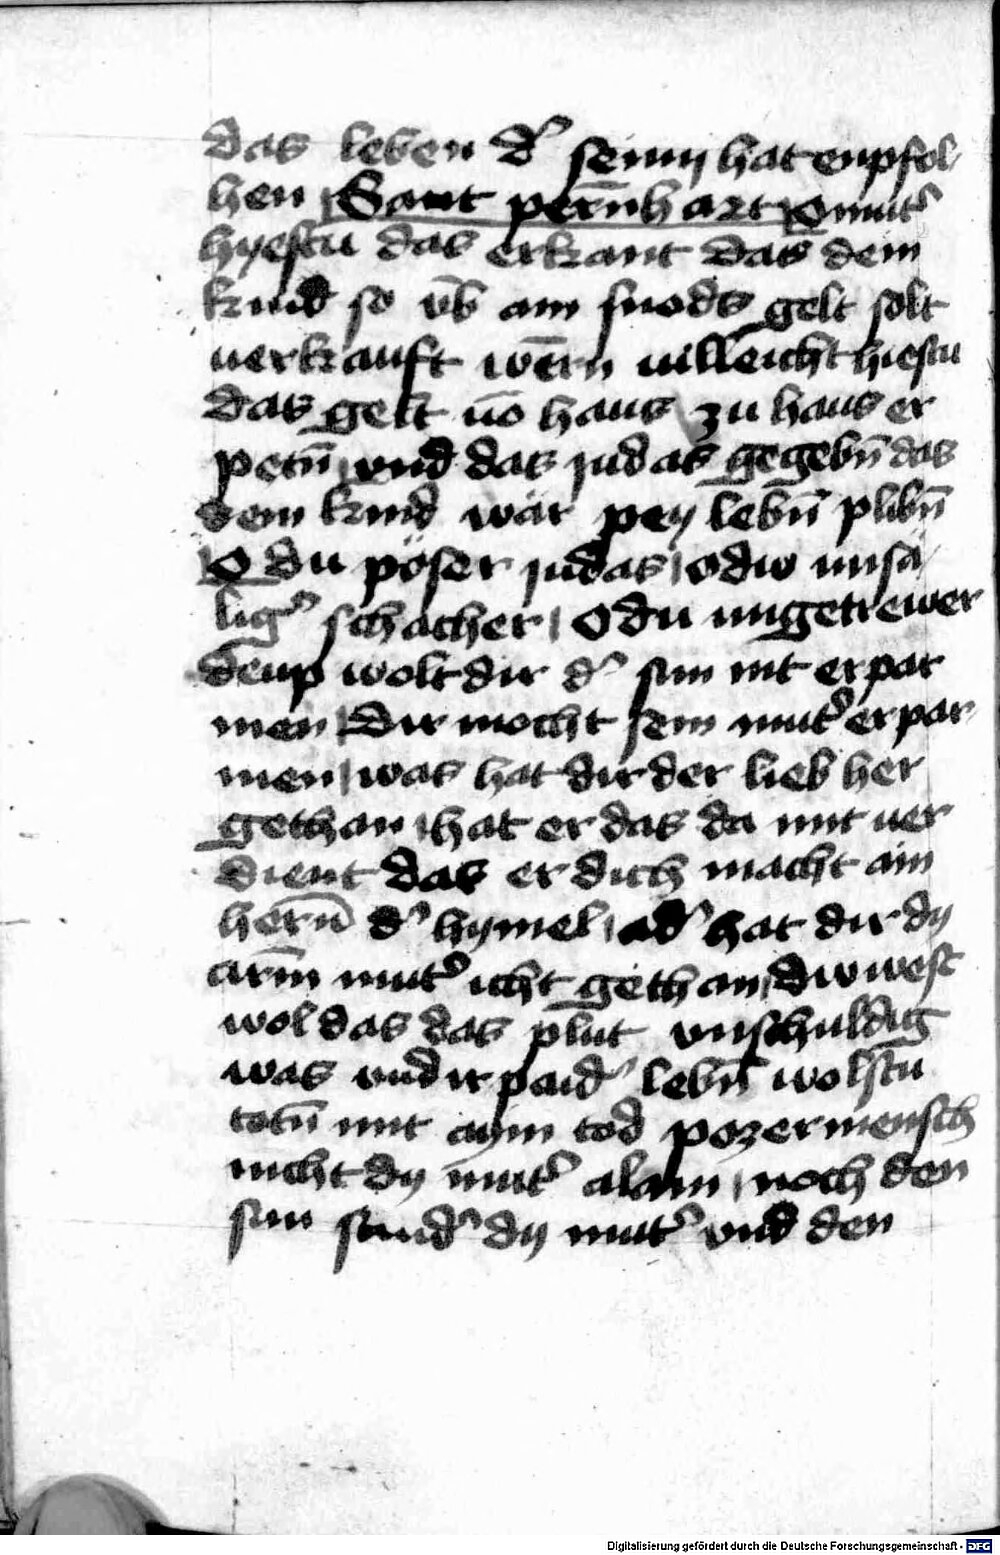 das leben d' seinn hat enpfol
hen Sant pern̄hart O mut'
hyestu das erkant das dein
kind so vb̄ ain snods gelt solt
uerkauft wērn uilleicht hiestu
das gelt uō haus zu haus er
petn̄ vnd das judas gegebn̄ das
dein kind wär pey lebn̄ plibn̄
O du pöser judas o diw unsa
lig' schacher O du ungetrewer
deup wolt dir d' sun nit erpar
men Dir mocht sein mut' erpar
men was hat dir der lieb her
gethan hat er das da mit uer
dient das er dich macht ain
hern̄ d' hymel od' hat dir dy
arm̄ mut' icht gethan diw west
wol das das plut vnschuldig
was vnd ir paid' lebn̄ wolstu
totn̄ mit aym tod pozer mensch
nicht dy mut' alain noch den
sun sund' dy mut' vnd den
Digitalisierung gefördert durch die Deutsche Forschungsgemeinschaft - DFG